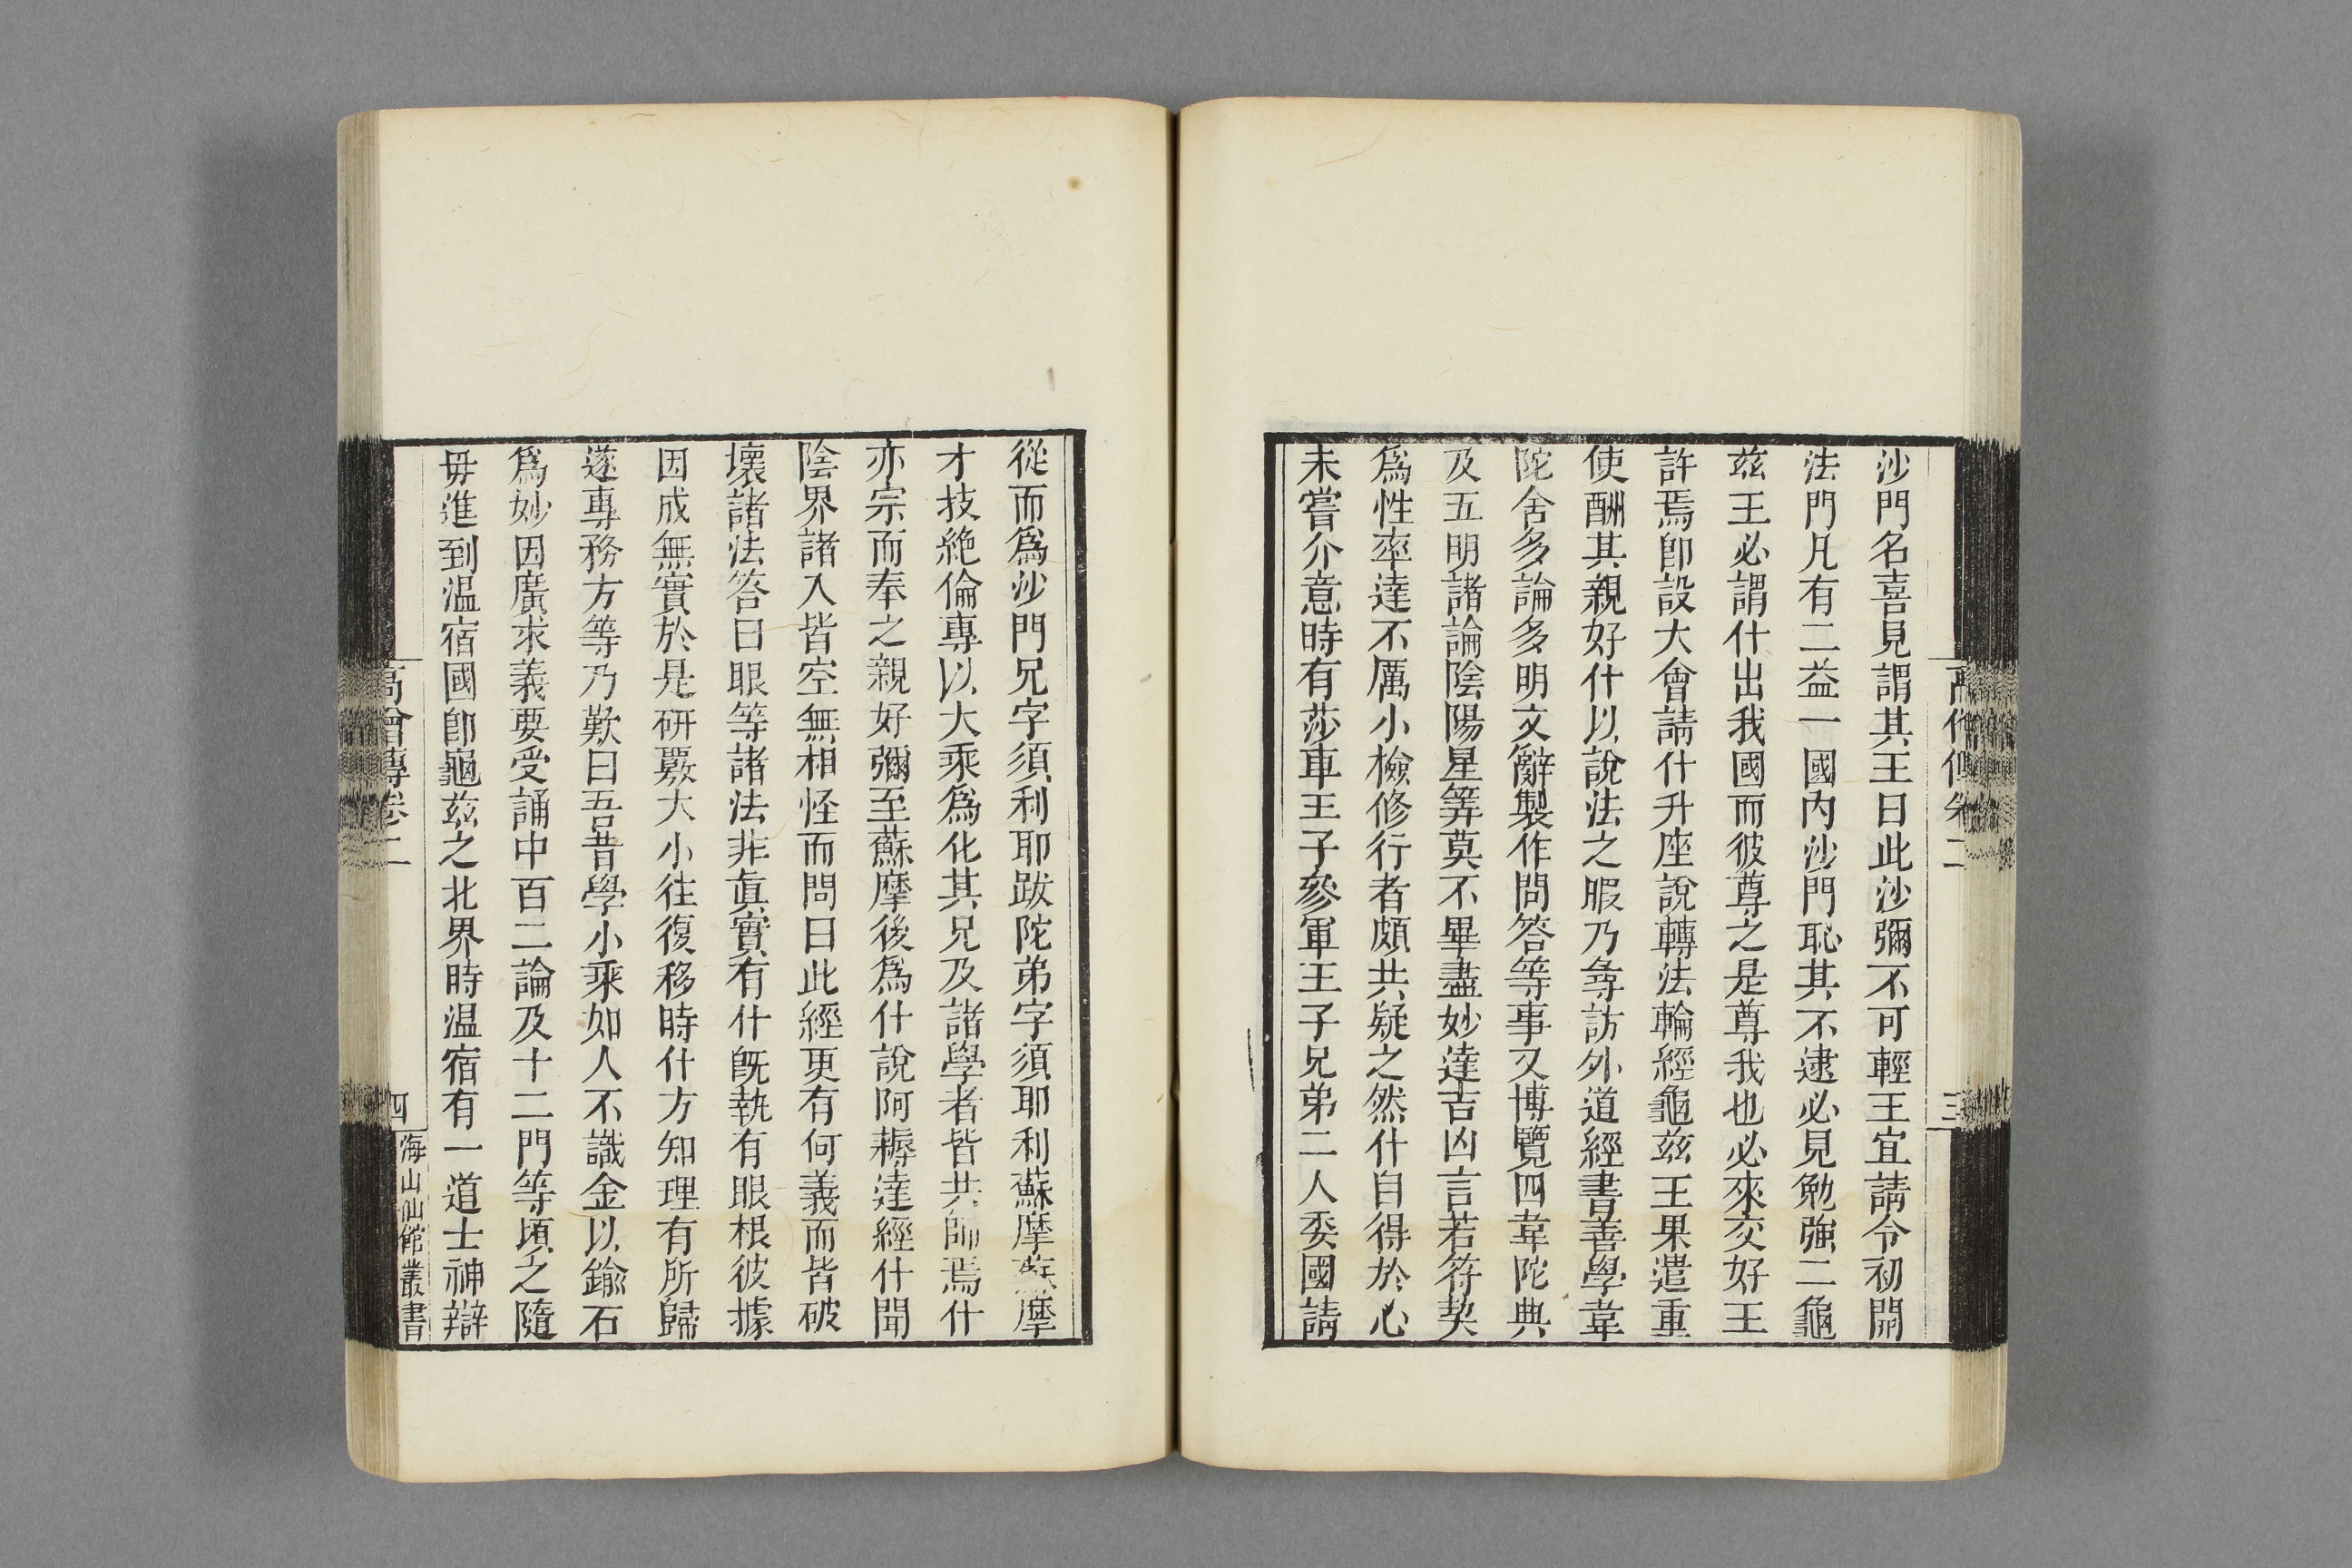 沙門名喜見謂其王曰此沙彌不可輕王宜請令初開
法門凡有二益一國內沙門恥其不逮必見勉強二龜
兹王必謂什出我國而彼尊之是尊我也必來交好王
許焉卽設大會請什升座說轉法輪經龜兹王果遣重
使酬其親好什以說法之暇乃尋訪外道經書善學韋
陀舍多論多明文辭製作問答等事又博覽四韋陀典
及五明諸論陰陽星筭莫不畢盡妙達吉凶言若符契
爲性率達不厲小檢修行者頗共疑之然什自得於心
未嘗介意時有莎車王子參軍王子兄弟二人委國請
從而爲沙門兄字須利耶跋陀弟字須耶利蘇摩蘇摩
才技絶倫專以大乘爲化其兄及諸學者皆共師焉什
亦宗而奉之親好彌至蘇摩後爲什說阿耨達經什聞
陰界諸入皆空無相怪而問曰此經更有何義而皆破
壞諸法答曰眼等諸法非眞實有什旣執有眼根彼據
因成無實於是硏覈大小往復移時什方知理有所歸
遂專務方等乃歎曰吾昔學小乘如人不識金以鍮石
爲妙因廣求義要受誦中百二論及十二門等頃之隨
毋進到温宿國卽龜兹之北界時温宿有一道士神辯
高僧傳卷二
四
海山仙館叢書